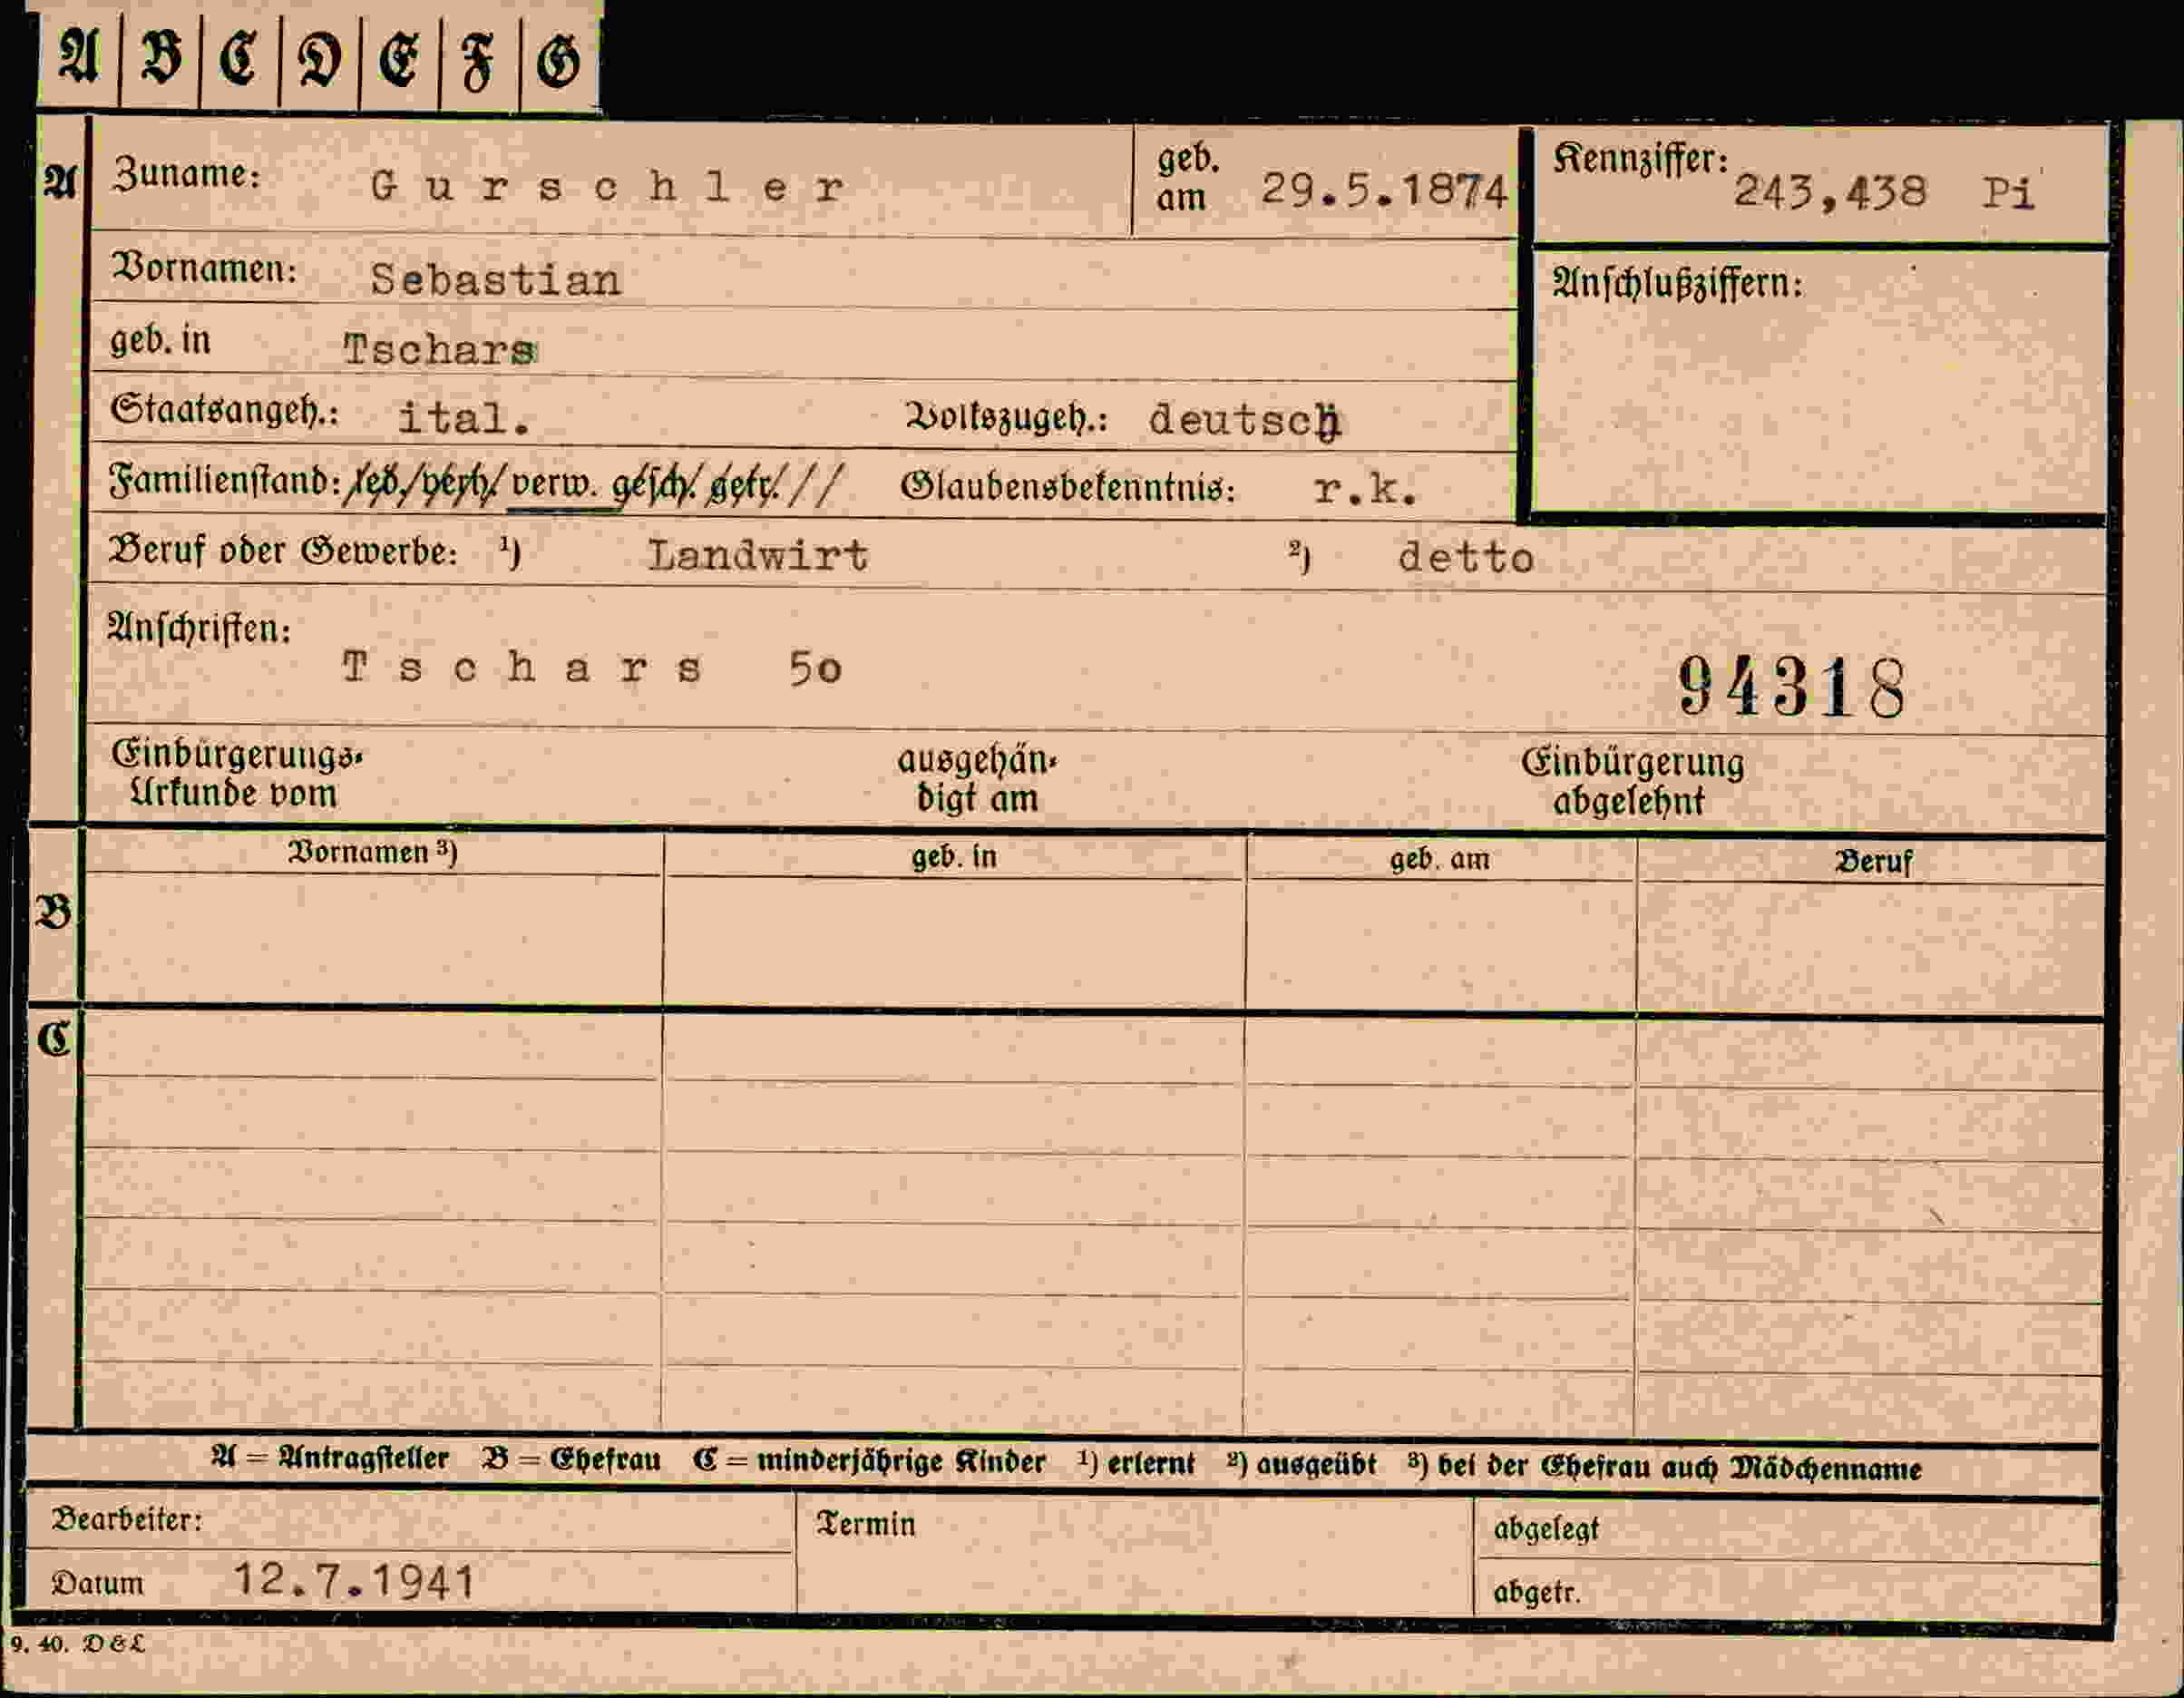 A B C D E F G
A Zuname: Gurschler geb. am 29.5.1874 Kennziffer: 243,438 Pi
Vornamen: Sebastian Anschlußziffern:
geb. in Tschars
Staatsangeh.: ital. Volkszugeh.: deutsch
Familienstand: led. verh. verw. gesch. getr. Glaubensbekenntnis: r.k.
Beruf oder Gewerbe: ¹) Landwirt ²) detto
Anschriften:
Tschars 5o 94318
Einbürgerungs- ausgehän- Einbürgerung
Urkunde vom digt am abgelehnt
Vornamen ³) geb. in geb. am Beruf
B
C
A = Antragsteller B = Ehefrau C = minderjährige Kinder ¹) erlernt ²) ausgeübt ³) bei der Ehefrau auch Mädchenname
Bearbeiter: Termin abgelegt
Datum 12.7.1941 abgetr.
9. 40. D & L